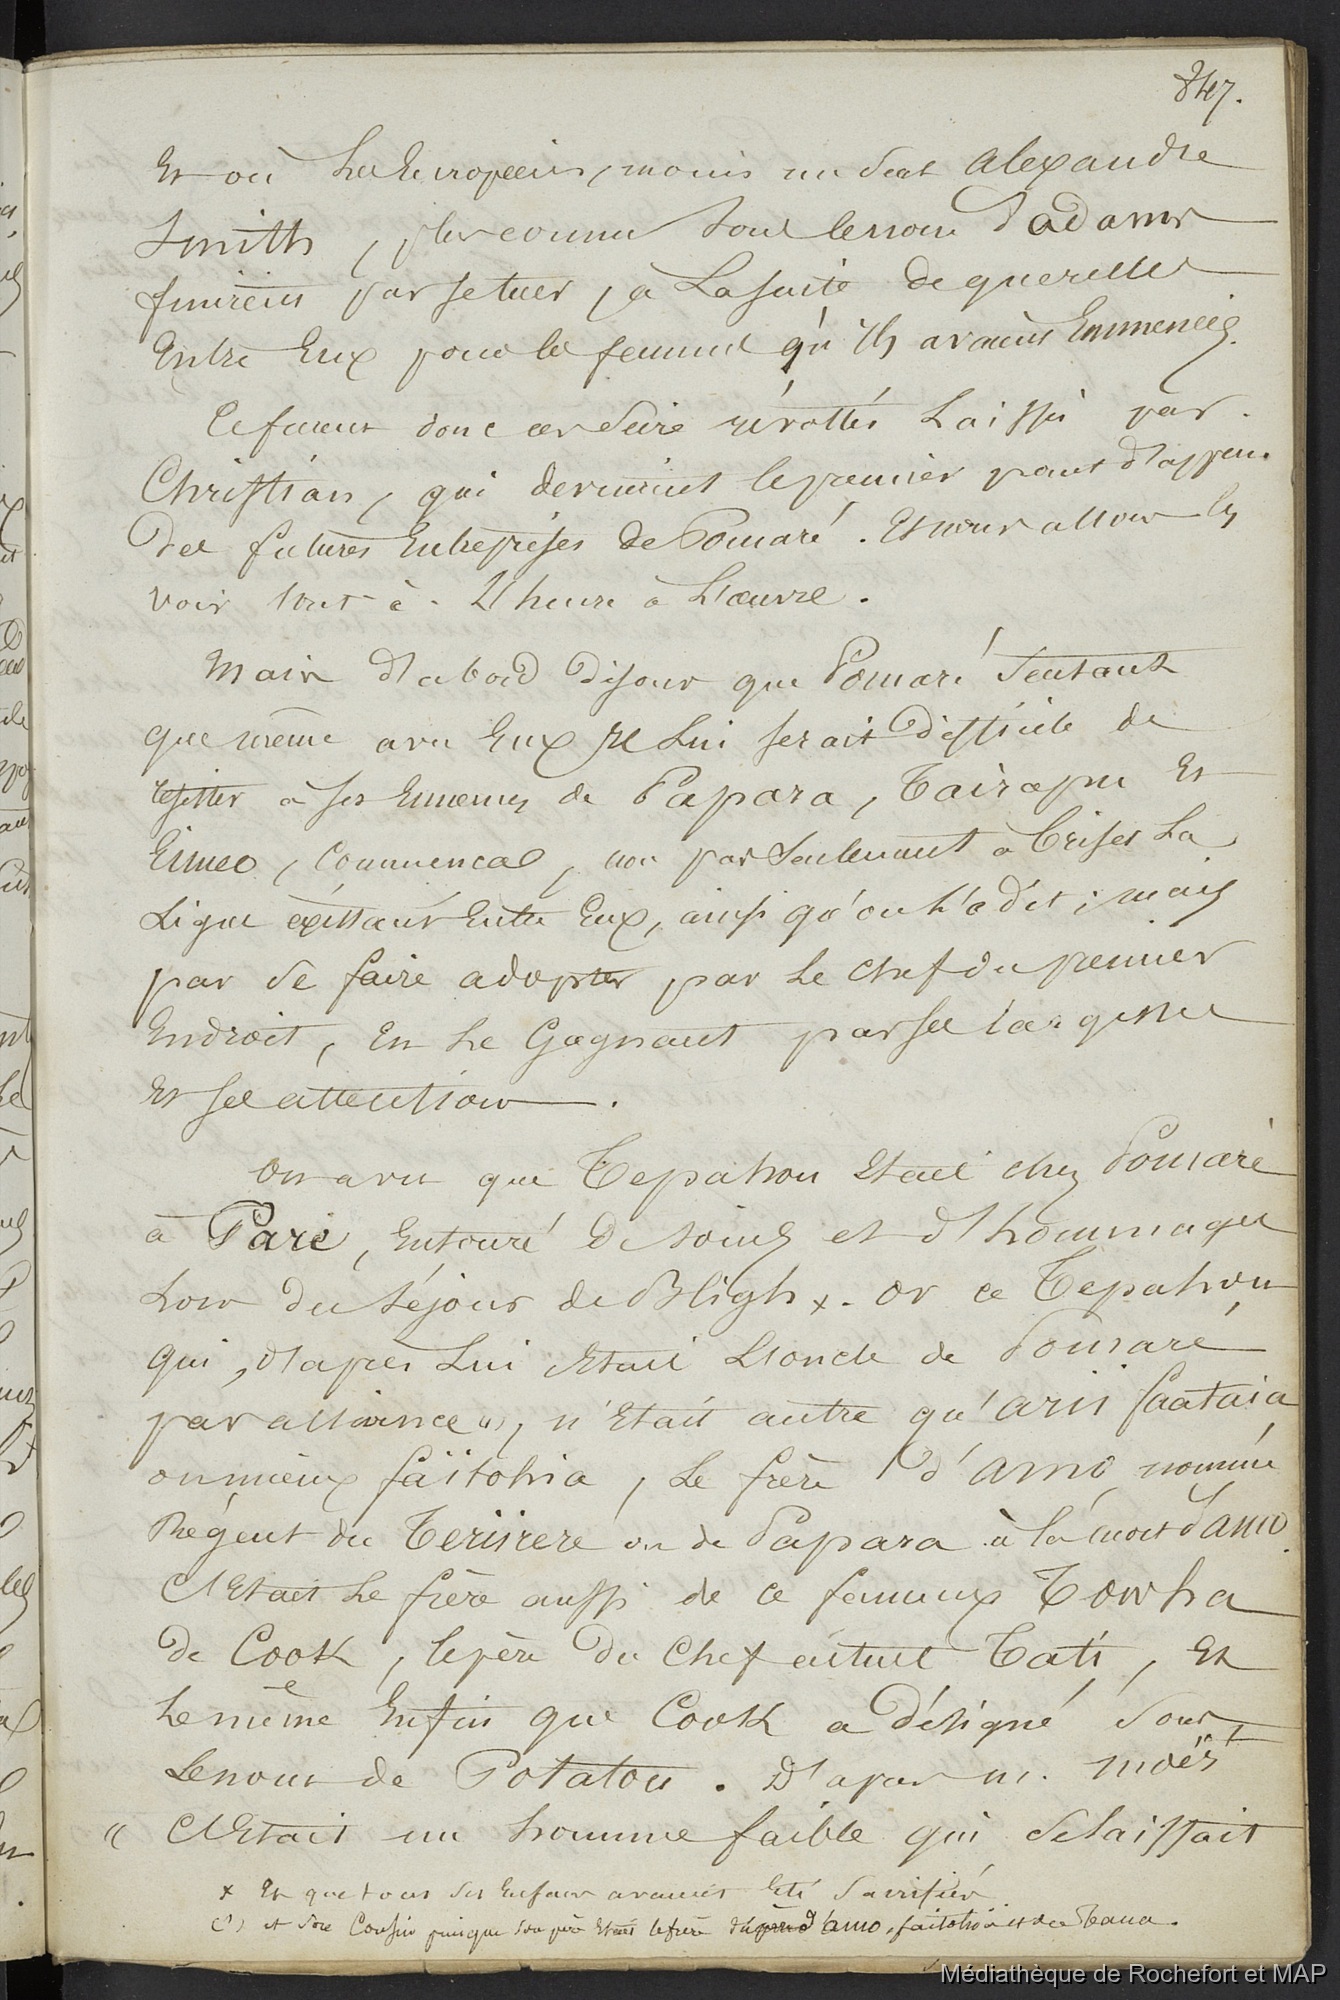 847.
Et où les Européens, moins un seul Alexandre
Smith, plus connu sous le nom d'adams
finirent par se tuer, à la suite de querelles
Entre Eux pour les femmes qu'ils avaient Emmenées.
Ce furent donc ces seize révoltés laissés par
Christian, qui devinrent le premier point d'appui
des futures Entreprises de Pomaré. Et nous allons les
voir tout à l'heure à l'œuvre.
Mais d'abord disons que Pomaré sentant
que même avec Eux il lui serait difficile de
résister à ses Ennemis de Papara, Tairapu Et
Eimeo, commença, non pas seulement à briser la
Ligue existant Entre Eux, ainsi qu'on l'a dit; mais
par se faire adopter par le chef du premier
Endroit, En le Gagnant par ses largesses
Et ses attentions.
On a vu que Tepahou Etait chez Pomaré
à Paré, Entouré de soins et d'hommages
Lors du séjour de Bligh x. Or ce Tepahou
qui, d'après Lui Etait L'oncle de Pomaré
par alliance (1), n'Etait autre qu'arii faataia
ou mieux faïtohia, le frère d'Amo, nommé
Régent du Teriirere ou de Papara à la mort d'Amo.
C'Etait le frère aussi de ce fameux Towha
de Cook, le père du Chef actuel Tati, Et
le même Enfin que Cook a désigné sous
le nom de Potatou. D'après m. moër t
" C'Etait un homme faible qui se laissait
x Et que tous ses Enfans avaient Eté sacrifiés
(1) et son Cousin puisque son père Etait le frère du père d'amo, faitohia et de Taua.
Médiathèque de Rochefort et MAP